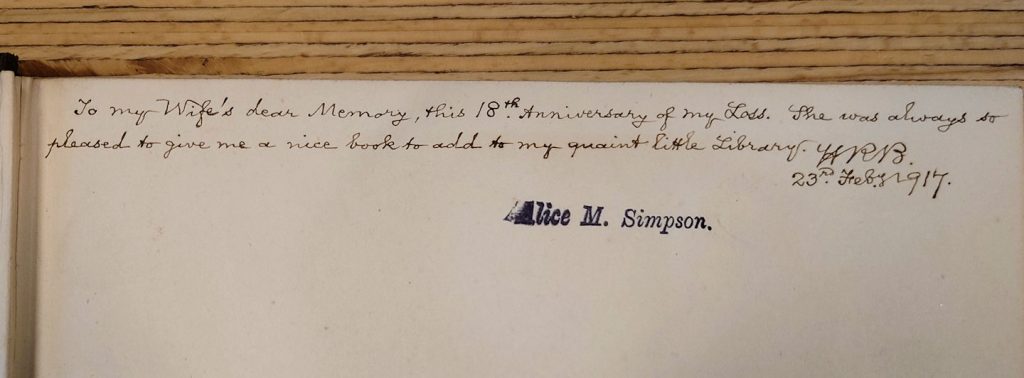 To my Wife's dear Memory, this 18th. Anniversary of my Loss. She was always so
pleased to give me a nice book to add to my quaint little Library. HRB.
23rd. Feby 1917.
Alice M. Simpson.